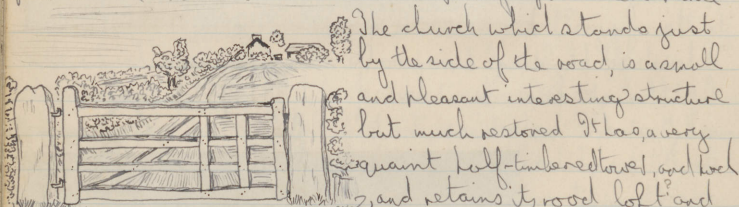 The church which stands just
by the side of the road, is a small
and pleasant interesting structure
but much restored It has, a very
quaint half-timbered tower, and
and retains its rood loft? and